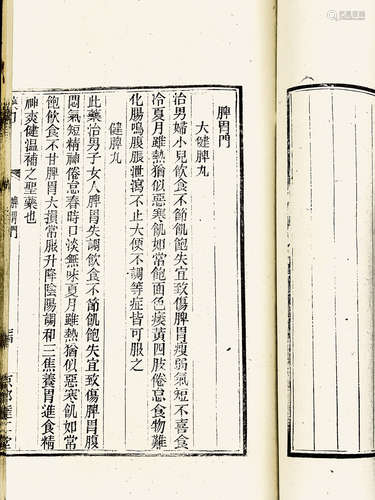 脾胃門
大健脾丸
治男婦小兒飲食不節飢飽失宜致傷脾胃瘦弱氣短不喜食
冷夏月雖熱猶似惡寒飢如常飽面色痿黃四肢倦怠食物難
化腸鳴脹脹泄瀉不止大便不調等症皆可服之
健脾丸
此藥治男子女人脾胃失調飲食不節飢飽失宜致傷脾胃腹
悶氣短精神倦怠春時口淡無味夏月雖熱猶似惡寒飢如常
飽飲食不甘脾胃大損常服升降陰陽調和三焦養胃進食精
神爽健溫補之聖藥也
脾胃門